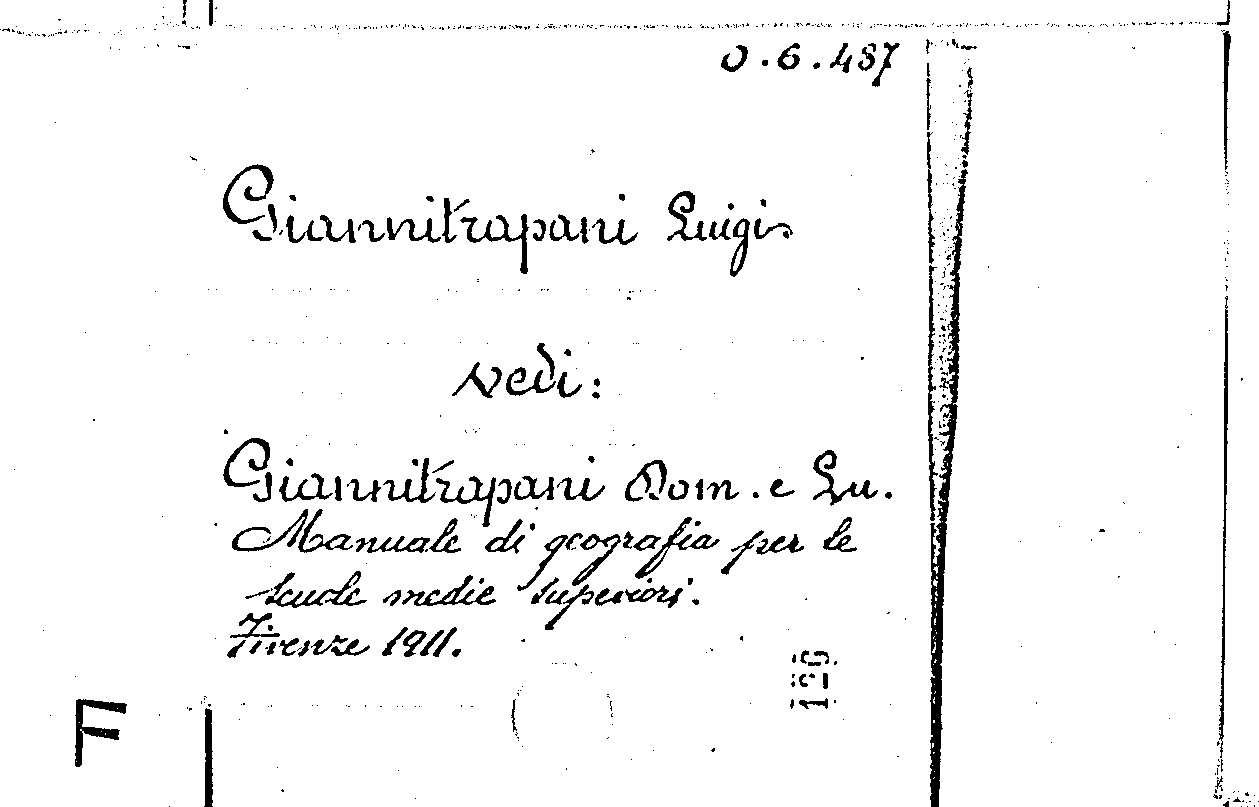 O.6.487
Giannitrapani Luigi
vedi:
Giannitrapani Dom. e Lu.
Manuale di geografia per le
scuole medie superiori.
Firenze 1911.
F